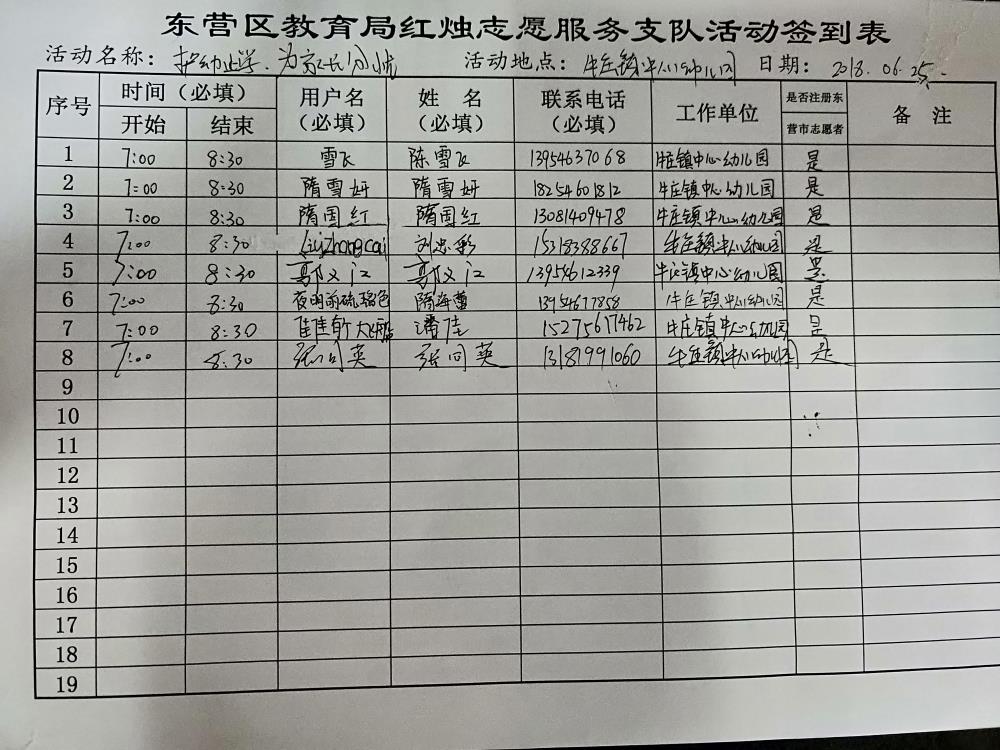 东营区教育局红烛志愿服务支队活动签到表
活动名称: 护幼上学.为家长分忧 活动地点: 牛庄镇中心幼儿园 日期: 2018.06.25.
序号 时间(必填) 用户名(必填) 姓名(必填) 联系电话(必填) 工作单位 是否注册东营市志愿者 备注
开始 结束
1 7:00 8:30 雪飞 陈雪飞 13954637068 牛庄镇中心幼儿园 是
2 7:00 8:30 隋雪妍 隋雪妍 18254601812 牛庄镇中心幼儿园 是
3 7:00 8:30 隋国红 隋国红 13081409478 牛庄镇中心幼儿园 是
4 7:00 8:30 Liuzhongcai 刘忠彩 15318388667 牛庄镇中心幼儿园 是
5 7:00 8:30 郭文江 郭文江 13954612339 牛庄镇中心幼儿园 是
6 7:00 8:30 夜明前琉璃色 隋海蕾 13954677858 牛庄镇中心幼儿园 是
7 7:00 8:30 佳佳 潘佳 15275617462 牛庄镇中心幼儿园 是
8 7:00 8:30 张同英 张同英 13181991060 牛庄镇中心幼儿园 是
9
10
11
12
13
14
15
16
17
18
19